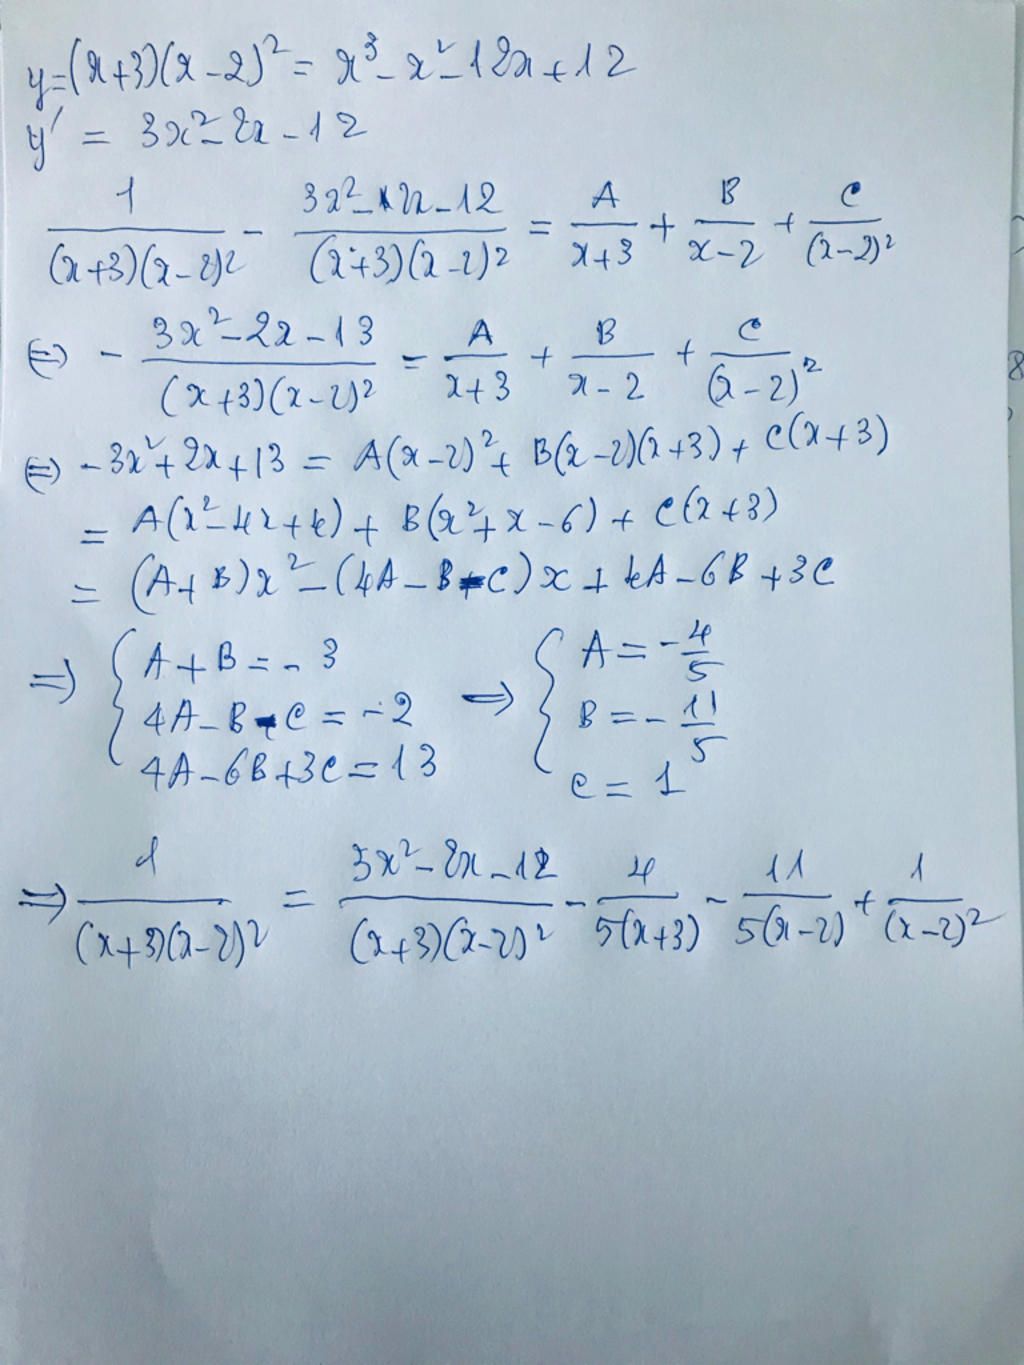 y=(x+3)(x-2)² = x³-x²-12x+12
y' = 3x²-2x-12
1/((x+3)(x-2)²) - (3x²-2x-12)/((x+3)(x-2)²) = A/(x+3) + B/(x-2) + C/(x-2)²
⇔ - (3x²-2x-13)/((x+3)(x-2)²) = A/(x+3) + B/(x-2) + C/(x-2)²
⇔ -3x²+2x+13 = A(x-2)² + B(x-2)(x+3) + C(x+3)
= A(x²-4x+4) + B(x²+x-6) + C(x+3)
= (A+B)x² - (4A-B-C)x + 4A-6B+3C
⇒ { A+B=-3 ⇒ { A = -4/5
4A-B-C=-2 B = -11/5
4A-6B+3C=13 C = 1
⇒ 1/((x+3)(x-2)²) = (3x²-2x-12)/((x+3)(x-2)²) - 4/(5(x+3)) - 11/(5(x-2)) + 1/(x-2)²